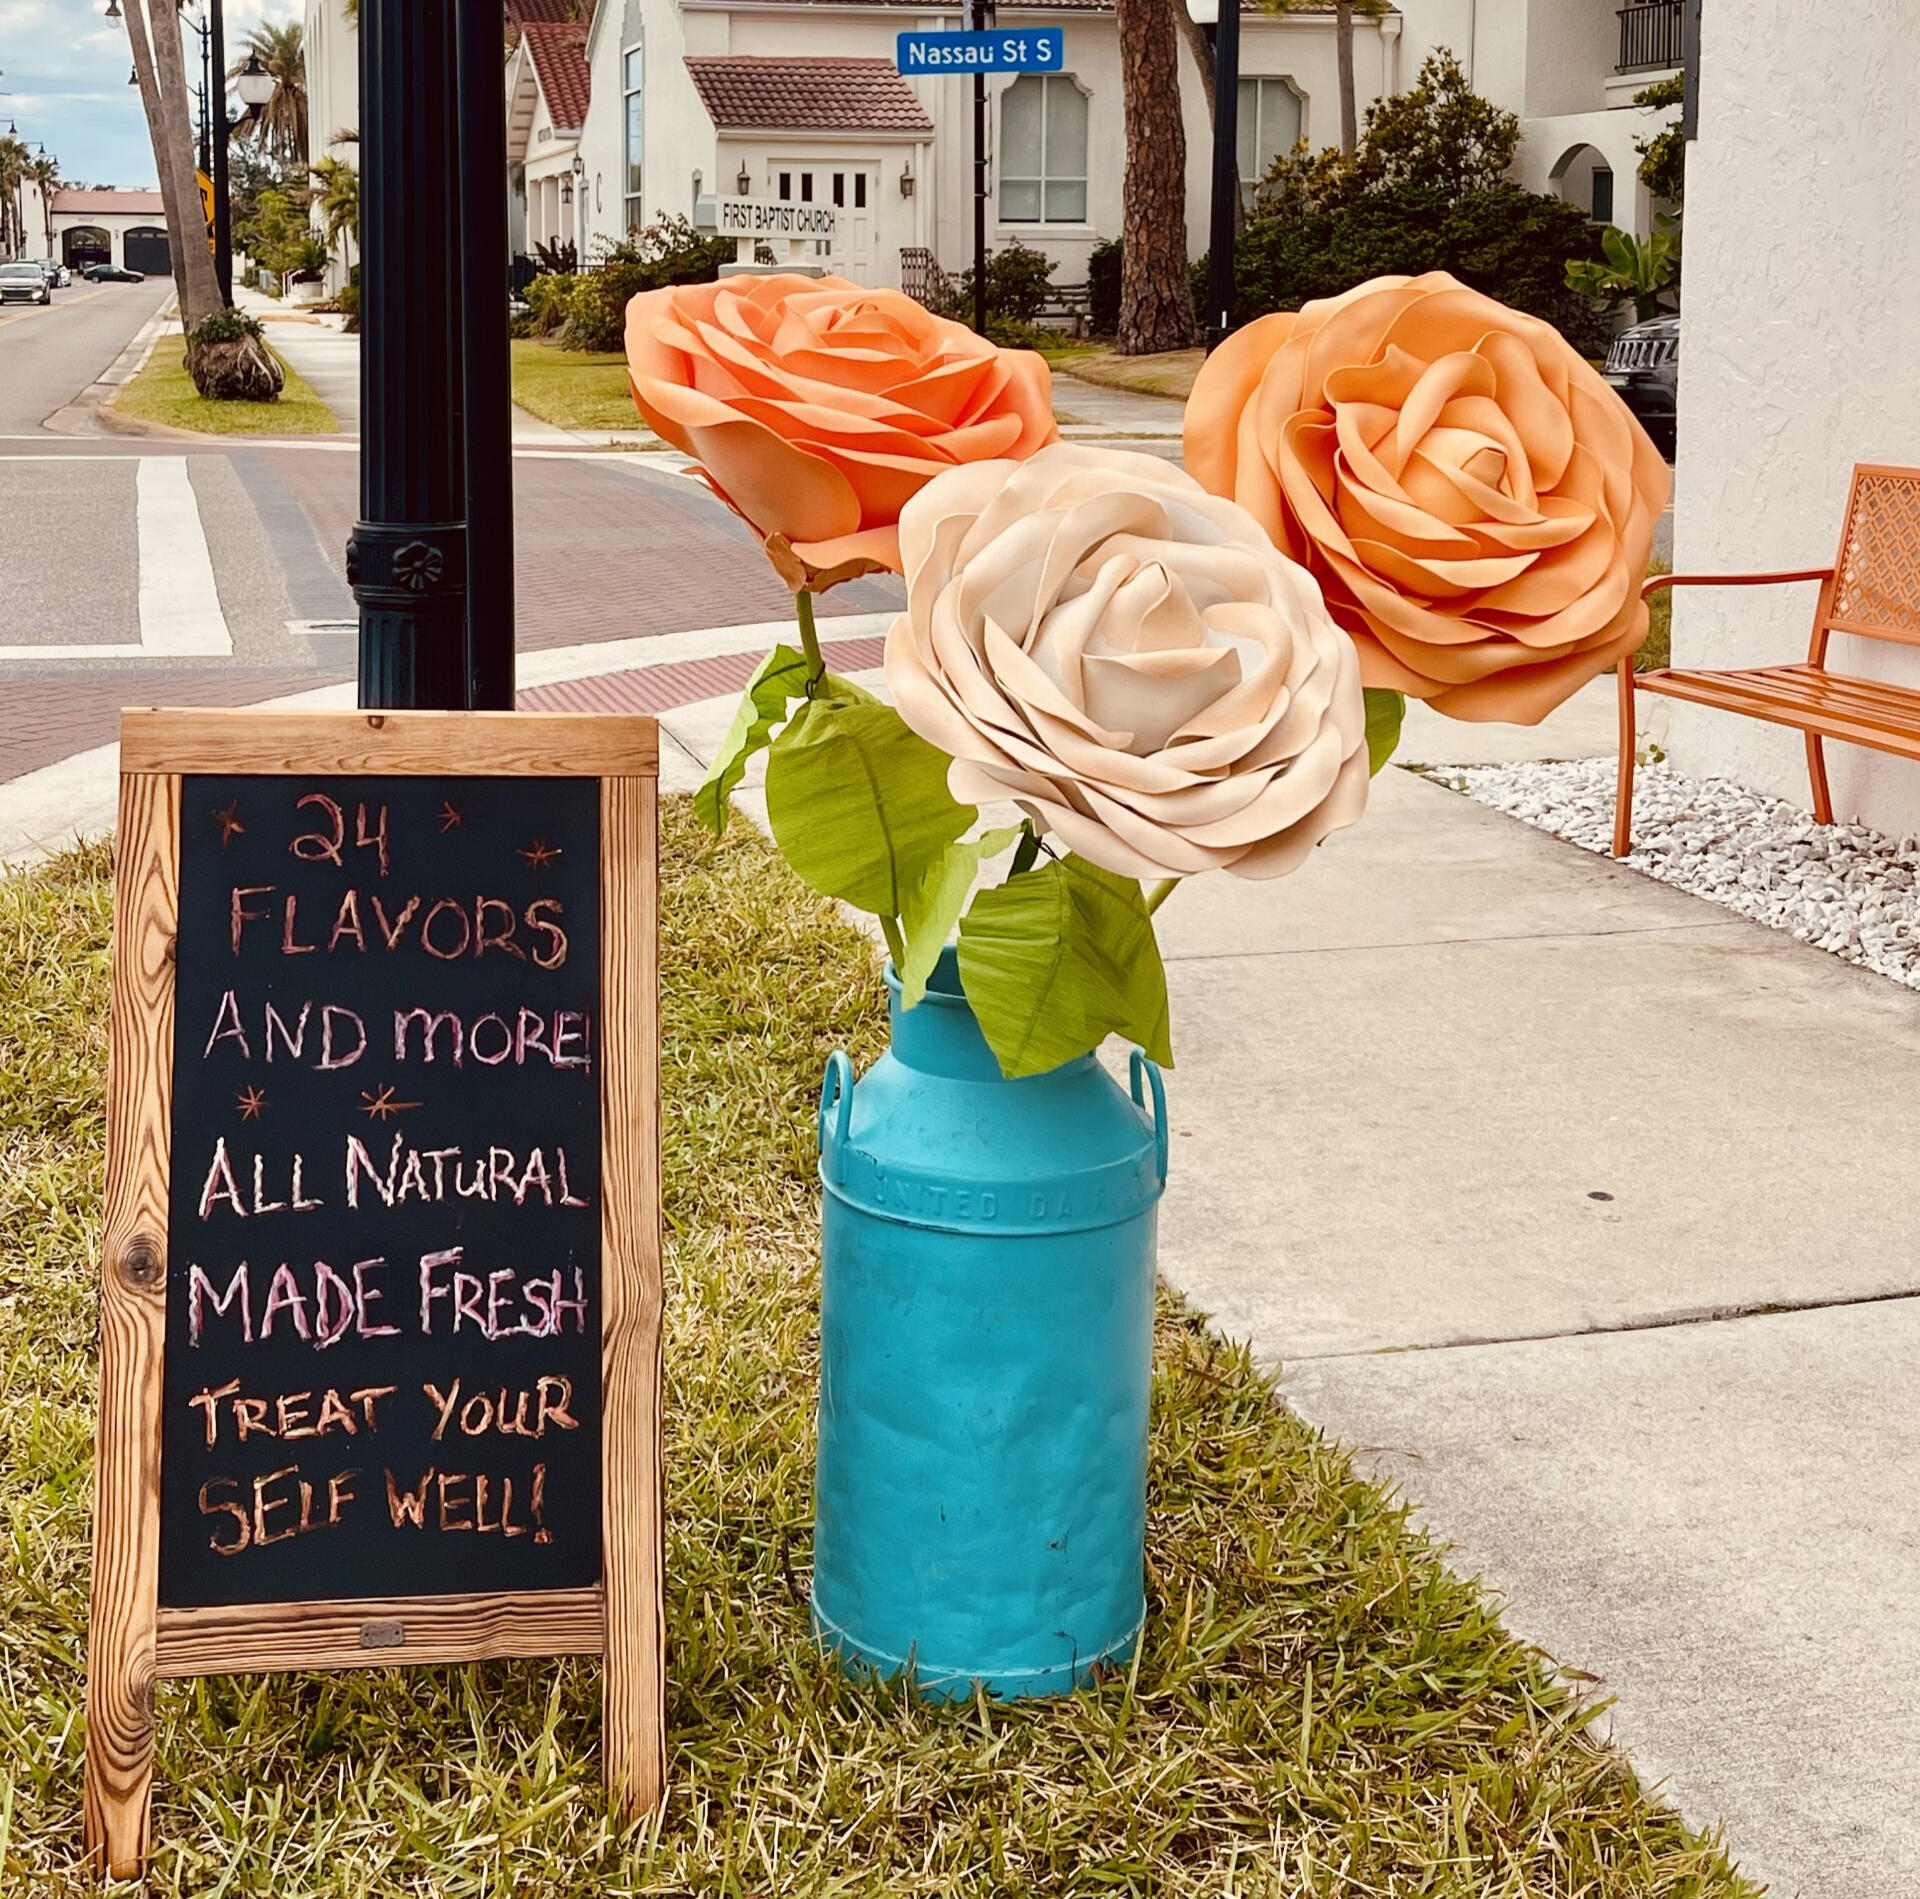 Nassau St S
FIRST BAPTIST CHURCH
24
FLAVORS
AND MORE!
ALL NATURAL
MADE FRESH
TREAT YOUR
SELF WELL!
UNITED